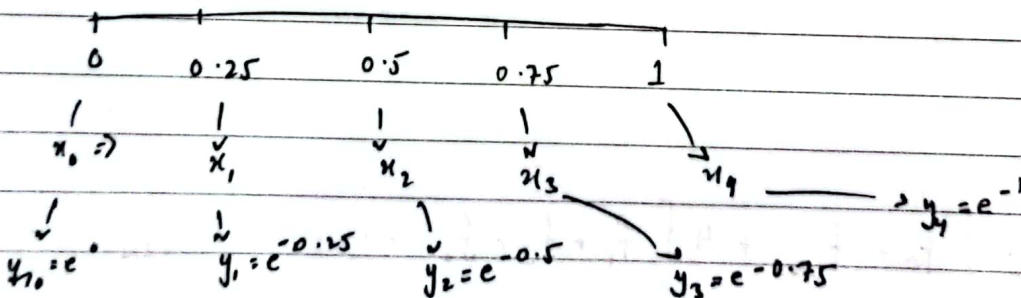 0 0.25 0.5 0.75 1
x₀ => x₁ x₂ x₃ x₄
y₀ = e⁰ y₁ = e^-0.25 y₂ = e^-0.5 y₃ = e^-0.75 y₄ = e^-1